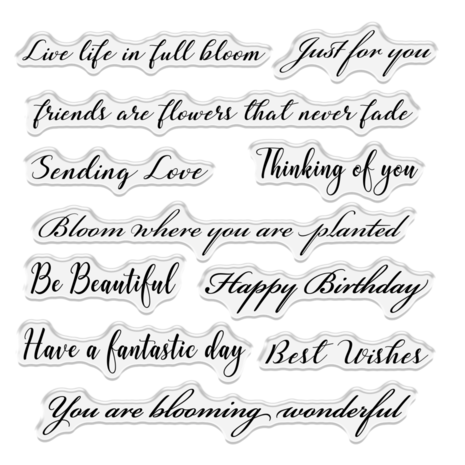 Live life in full bloom
Just for you
friends are flowers that never fade
Sending Love
Thinking of you
Bloom where you are planted
Be Beautiful
Happy Birthday
Have a fantastic day
Best Wishes
You are blooming wonderful